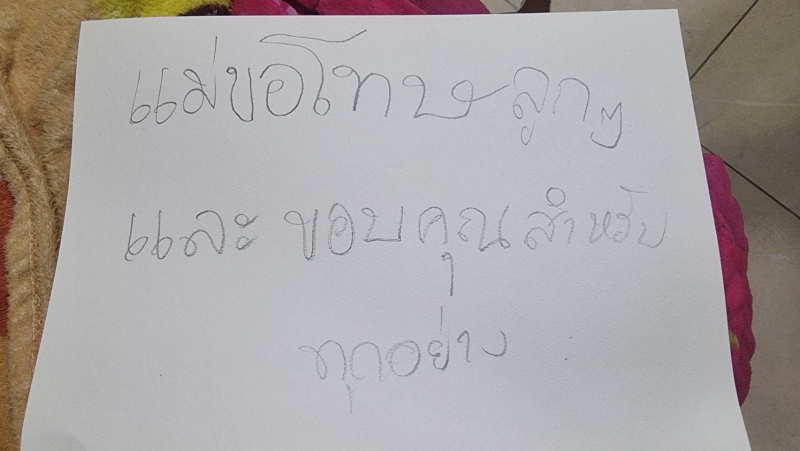 แม่ขอโทษลูกๆ
และ ขอบคุณสำหรับ
ทุกอย่าง